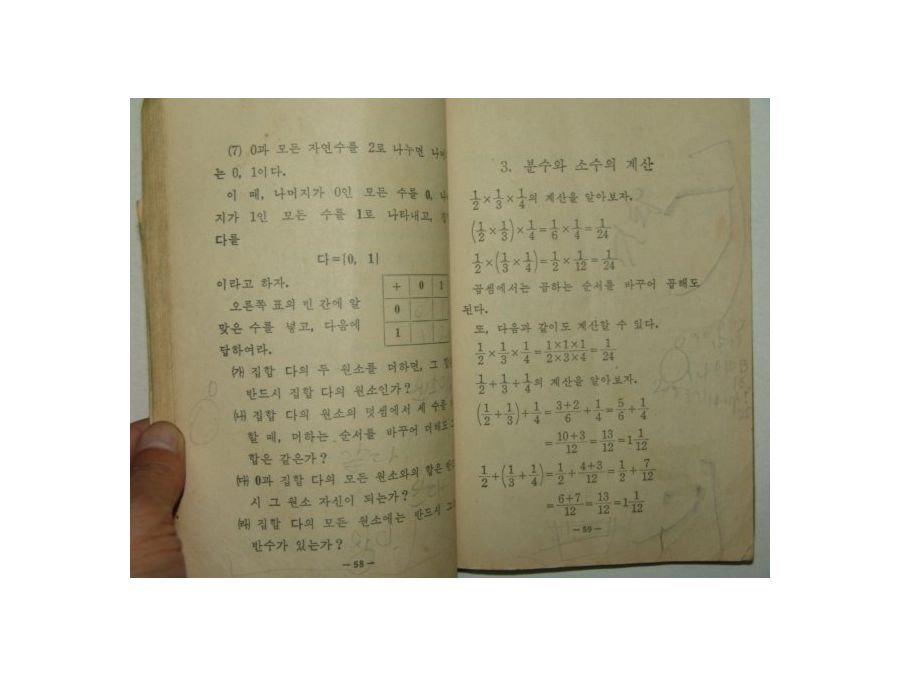 (7) 0과 모든 자연수를 2로 나누면
는 0, 1이다.
이 때, 나머지가 0인 모든 수를 0,
지가 1인 모든 수를 1로 나타내고,
다를
다={0, 1}
이라고 하자.
오른쪽 표의 빈 칸에 알
맞은 수를 넣고, 다음에
답하여라.
+ 0 1
0
1
(가) 집합 다의 두 원소를 더하면, 그
반드시 집합 다의 원소인가?
(나) 집합 다의 원소의 덧셈에서 세 수를
할 때, 더하는 순서를 바꾸어 더해도
합은 같은가?
(다) 0과 집합 다의 모든 원소와의 합은
시 그 원소 자신이 되는가?
(라) 집합 다의 모든 원소에는 반드시
반수가 있는가?
— 58 —
3. 분수와 소수의 계산
1/2×1/3×1/4의 계산을 알아보자.
(1/2×1/3)×1/4=1/6×1/4=1/24
1/2×(1/3×1/4)=1/2×1/12=1/24
곱셈에서는 곱하는 순서를 바꾸어 곱해도
된다.
또, 다음과 같이도 계산할 수 있다.
1/2×1/3×1/4=1×1×1/2×3×4=1/24
1/2+1/3+1/4의 계산을 알아보자.
(1/2+1/3)+1/4=3+2/6+1/4=5/6+1/4
=10+3/12=13/12=1 1/12
1/2+(1/3+1/4)=1/2+4+3/12=1/2+7/12
=6+7/12=13/12=1 1/12
— 59 —